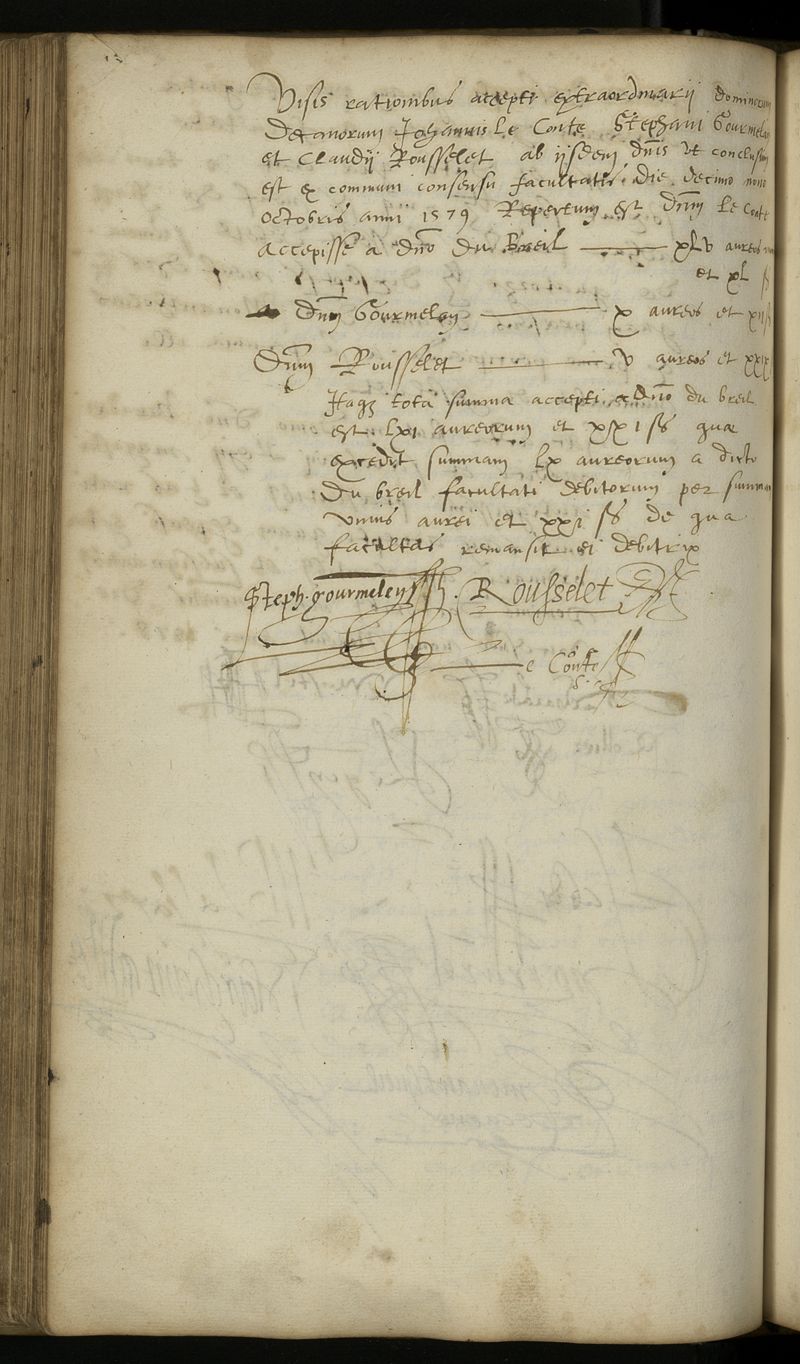 Visis rationibus accepti extraordinarij dominorum
decanorum Johannis Le Conte Stephani Gourmelen
et Claudij Rousselet ab ijsdem dnis ut conclusum
est ex communi consensu facultatis die decimo nono
octobris anni 1579 Repertum est dnm Le Conte
accepisse a dno du Breil xLv aureos
et xL ß
dnm Gourmelen x aureos et xij ß
Dnm Rousselet v aureos et xxix
Itaq tota summa accepti a dno du breil
est Lxi aureorum et xxi ß qua
excedit summam Lx aureorum a dicto
Du breil facultati debitorum per summam
unius aurei et xxi ß de qua
facultas remansit ei debitrix
Steph. gourmelen Rousselet
Le Conte